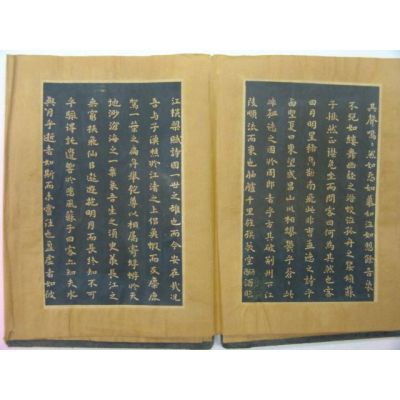 其聲嗚〻然如怨如慕如泣如愬餘音嫋〻
不絕如縷舞幽壑之潛蛟泣孤舟之嫠婦蘇
子愀然正襟危坐而問客曰何為其然也客
曰月明星稀烏鵲南飛此非曹孟德之詩乎
西望夏口東望武昌山川相繆鬱乎蒼〻此
非孟德之困於周郎者乎方其破荆州下江
陵順流而東也舳艫千里旌旗蔽空釃酒臨
江橫槊賦詩固一世之雄也而今安在哉況
吾與子漁樵於江渚之上侶魚蝦而友麋鹿
駕一葉之扁舟舉匏尊以相屬寄蜉蝣於天
地渺滄海之一粟哀吾生之須臾羨長江之
無窮挾飛仙以遨遊抱明月而長終知不可
乎驟得託遺響於悲風蘇子曰客亦知夫水
與月乎逝者如斯而未嘗往也盈虛者如彼